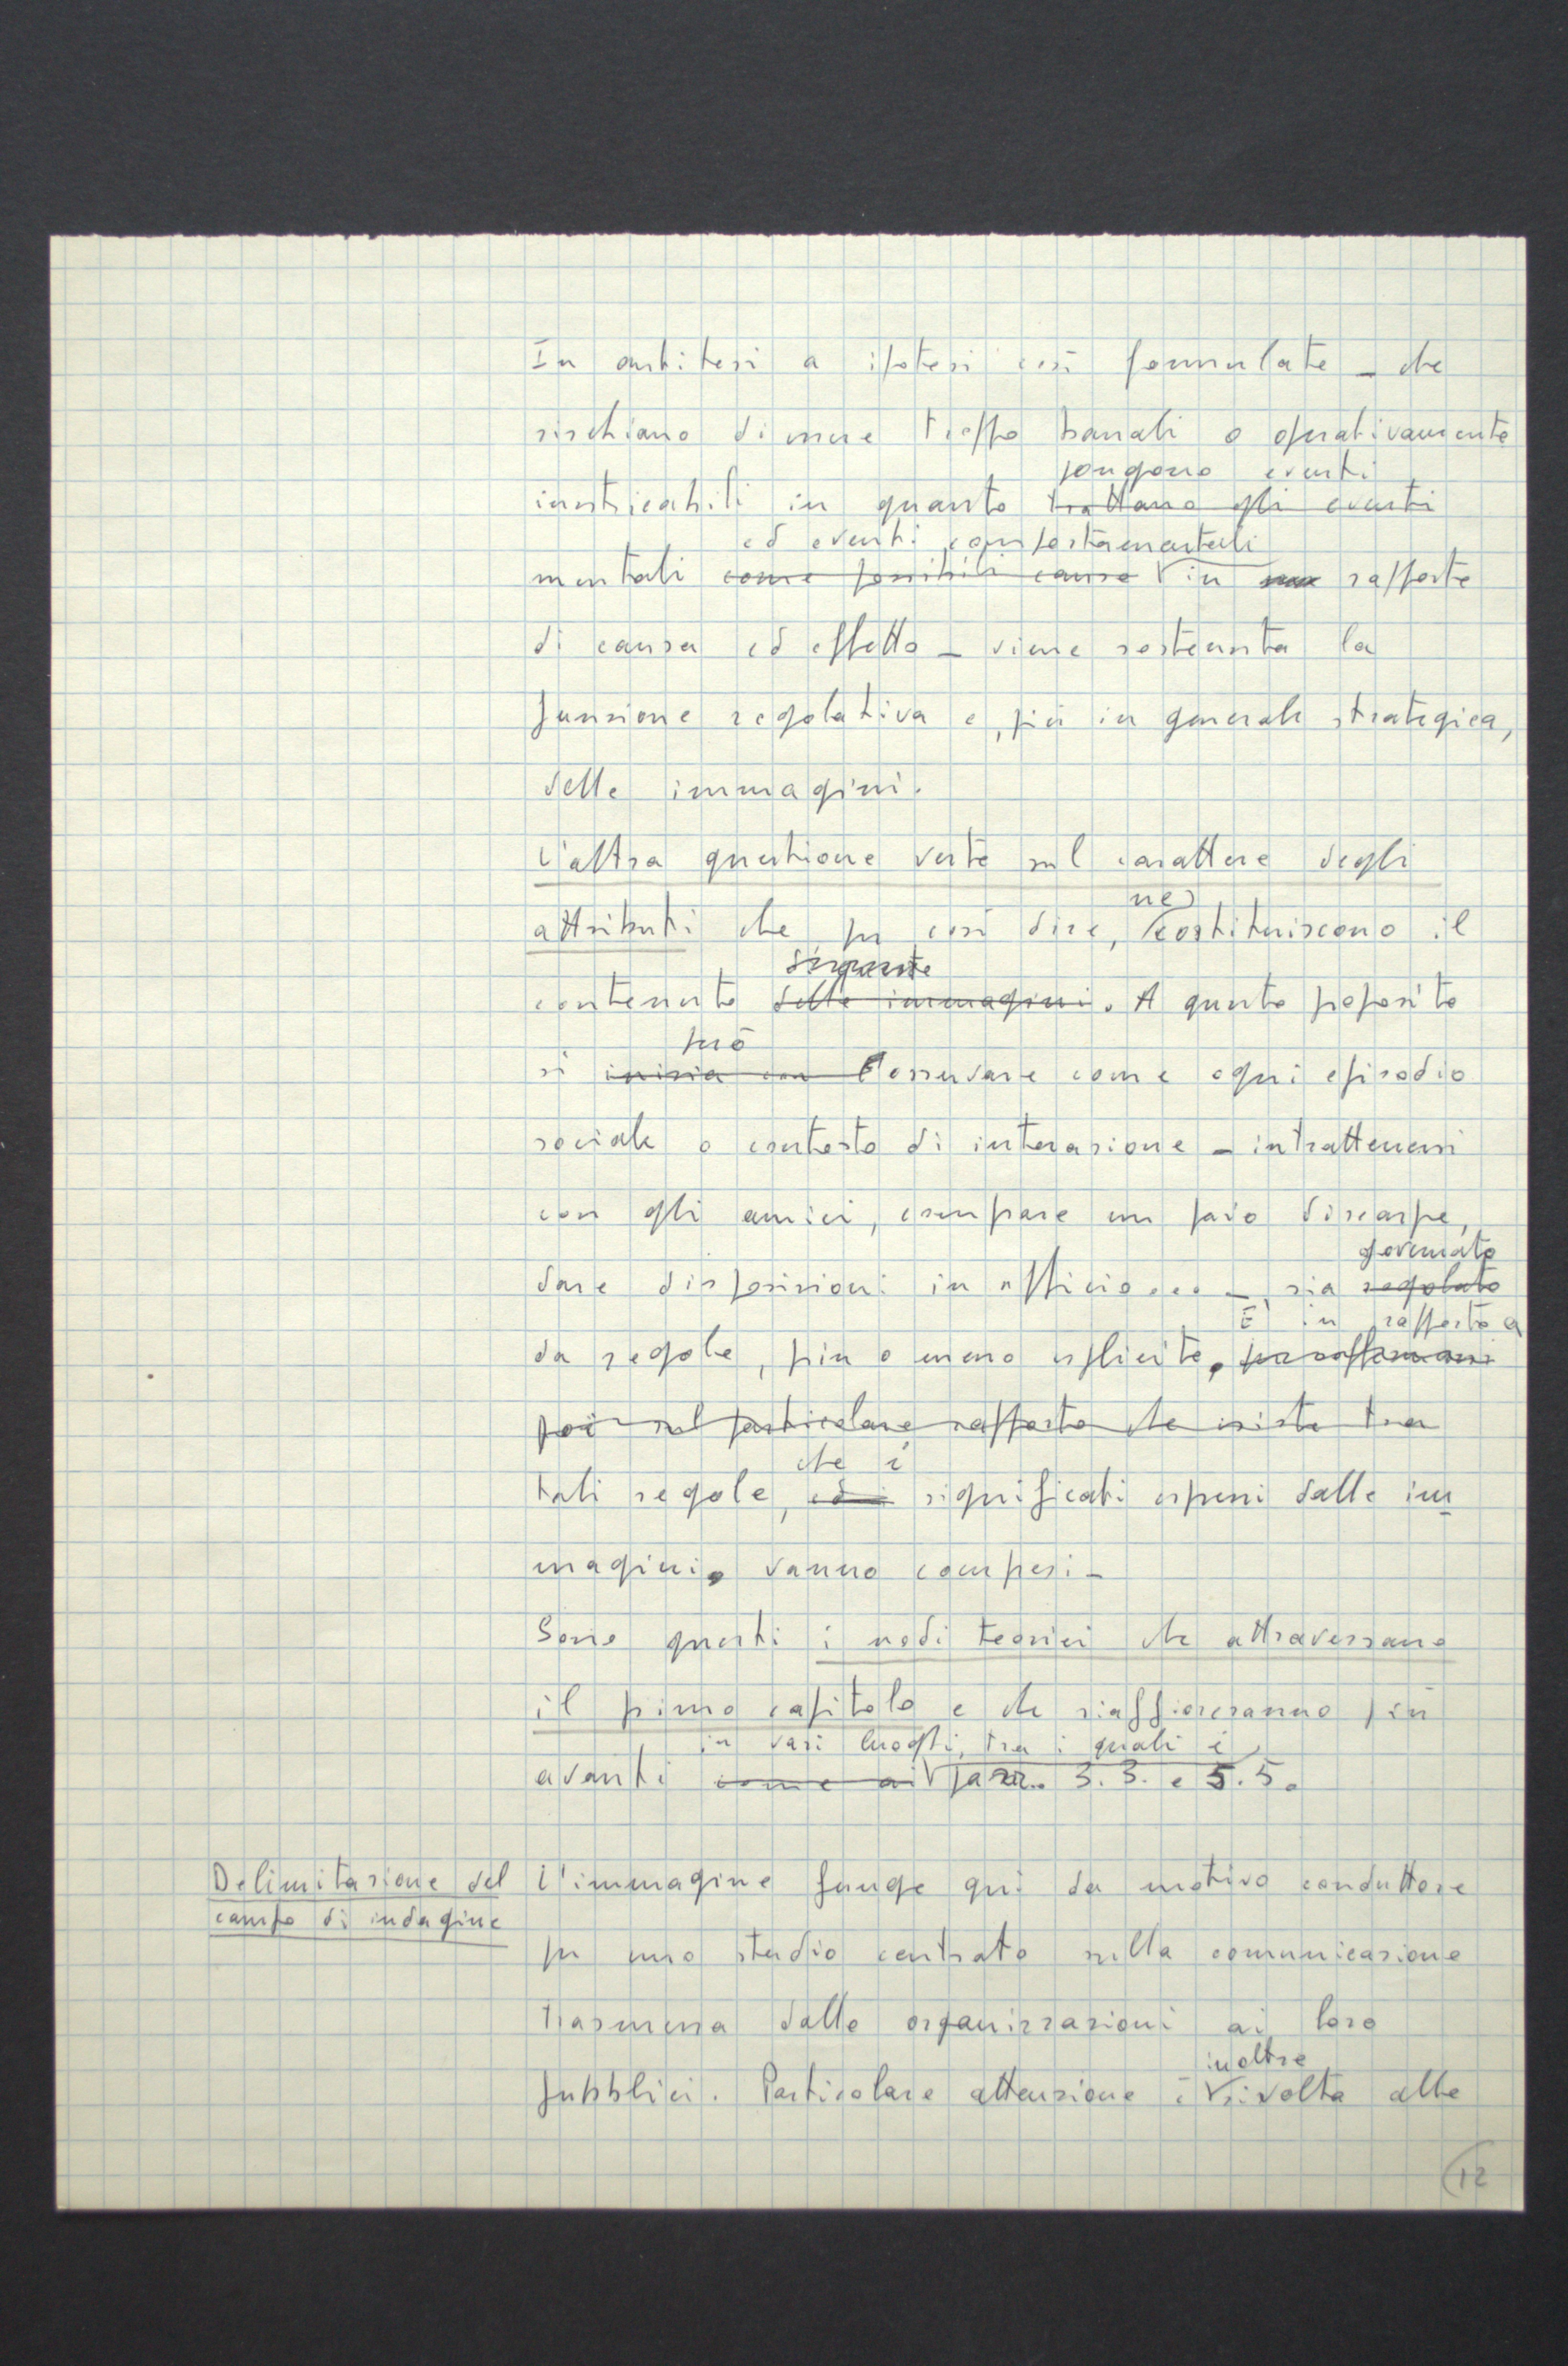 In antitesi a ipotesi così formulate - che
rischiano di essere troppo banali o operativamente
pongono eventi
inestricabili in quanto trattano gli eventi
ed eventi comportamentali
mentali come possibili cause in rapporto
di causa ed effetto - viene sostenuta la
funzione regolativa e, più in generale strategica,
delle immagini.
L'altra questione verte sul carattere degli
ne
attributi che, per così dire, costituiscono il
contenuto delle immagini. A questo proposito
può
si inizia con l'osservare come ogni episodio
sociale o contesto di interazione - intrattenersi
con gli amici, comprare un paio di scarpe,
governato
dare disposizioni in ufficio... - sia regolato
È in rapporto a
da regole, più o meno esplicite. per soffermarsi
poi sul particolare rapporto che esiste tra
che i
tali regole, ed i significati espressi dalle im
magini. vanno compresi -
Sono questi i nodi teorici che attraversano
il primo capitolo e che riaffioreranno più
in vari luoghi, tra i quali i
avanti come ai parr. 3.3. e 5.5.
Delimitazione del
campo di indagine
L'immagine funge qui da motivo conduttore
per uno studio centrato sulla comunicazione
trasmessa dalle organizzazioni ai loro
inoltre
pubblici. Particolare attenzione è rivolta alle
12